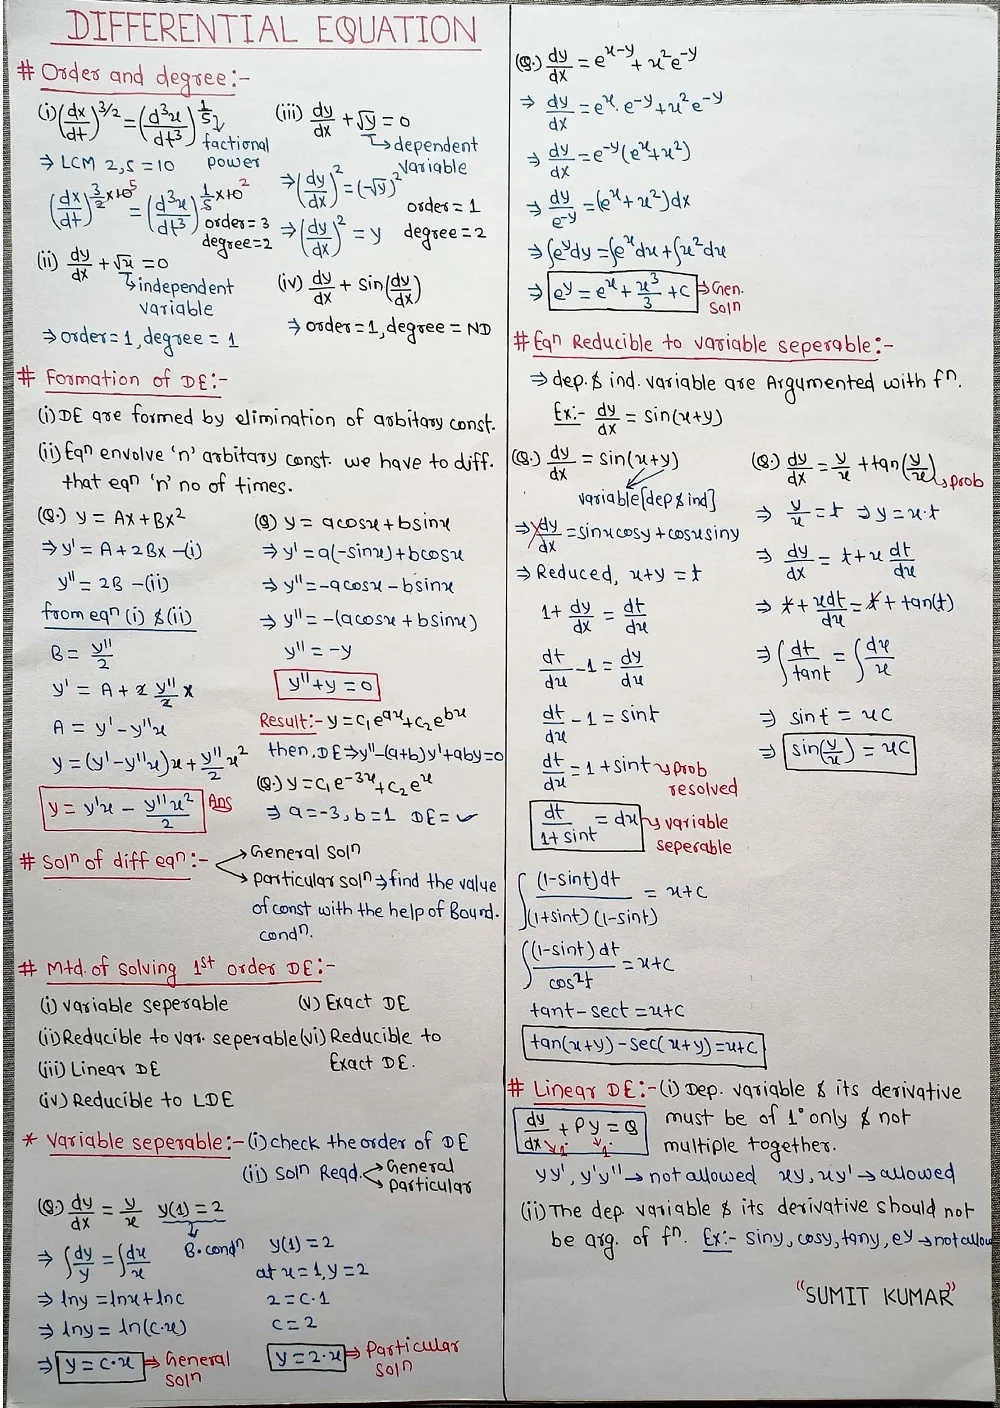 DIFFERENTIAL EQUATION
# Order and degree:-
(i) (dx/dt)^3/2 = (d³x/dt³)^1/5 → factional power
⇒ LCM 2,5 = 10
(dx/dt)^3/2×10⁵ = (d³x/dt³)^1/5×10² order=3 degree=2
(ii) dy/dx + √x = 0
↳ independent variable
⇒ order=1, degree=1
(iii) dy/dx + √y = 0
↳ dependent variable
⇒ (dy/dx)² = (-√y)²
⇒ (dy/dx)² = y order=1 degree=2
(iv) dy/dx + sin(dy/dx)
⇒ order=1, degree=ND
# Formation of DE:-
(i) DE are formed by elimination of arbitary const.
(ii) Eqⁿ envolve 'n' arbitary const. we have to diff.
that eqⁿ 'n' no of times.
(Q.) y = Ax + Bx²
⇒ y' = A + 2Bx -(i)
y'' = 2B -(ii)
from eqⁿ (i) & (ii)
B = y''/2
y' = A + 2 y''/2 x
A = y' - y''x
y = (y' - y''x)x + y''/2 x²
y = y'x - y''x²/2 Ans
(Q) y = acosx + bsinx
⇒ y' = a(-sinx) + bcosx
⇒ y'' = -acosx - bsinx
⇒ y'' = -(acosx + bsinx)
y'' = -y
y'' + y = 0
Result:- y = c₁e^ax + c₂e^bx
then, DE ⇒ y'' - (a+b)y' + aby = 0
(Q.) y = c₁e^-3x + c₂e^x
⇒ a = -3, b = 1 DE = ✓
# Solⁿ of diff eqⁿ:- → General Solⁿ
→ particular solⁿ ⇒ find the value
of const with the help of Bound.
condⁿ.
# Mtd. of solving 1st order DE:-
(i) variable seperable (v) Exact DE
(ii) Reducible to var. seperable (vi) Reducible to
(iii) Linear DE Exact DE.
(iv) Reducible to LDE
* Variable seperable:- (i) check the order of DE
(ii) Solⁿ Reqd. → General
→ particular
(Q.) dy/dx = y/x y(1) = 2
↓ B.condⁿ
⇒ ∫dy/y = ∫dx/x
⇒ lny = lnx + lnc
⇒ lny = ln(c.x)
⇒ y = c.x ⇒ General solⁿ
y(1) = 2
at x=1, y=2
2 = c.1
c = 2
y = 2.x ⇒ Particular solⁿ
(Q.) dy/dx = e^x-y + x²e^-y
⇒ dy/dx = e^x. e^-y + x²e^-y
⇒ dy/dx = e^-y(e^x + x²)
⇒ dy/e^-y = (e^x + x²)dx
⇒ ∫e^y dy = ∫e^x dx + ∫x²dx
⇒ e^y = e^x + x³/3 + c ⇒ Gen. solⁿ
# Eqⁿ Reducible to variable seperable:-
⇒ dep. & ind. variable are Argumented with fⁿ.
Ex:- dy/dx = sin(x+y)
(Q.) dy/dx = sin(x+y)
variable[dep & ind]
⇒ dy/dx = sinxcosy + cosxsiny
⇒ Reduced, x+y = t
1 + dy/dx = dt/dx
dt/dx - 1 = dy/dx
dt/dx - 1 = sint
dt/dx = 1 + sint → prob resolved
dt/1+sint = dx → variable seperable
∫(1-sint)dt/(1+sint)(1-sint) = x+c
∫(1-sint)dt/cos²t = x+c
tant - sect = x+c
tan(x+y) - sec(x+y) = x+c
(Q.) dy/dx = y/x + tan(y/x) → prob
⇒ y/x = t ⇒ y = x.t
⇒ dy/dx = t + x dt/dx
⇒ t + xdt/dx = t + tan(t)
⇒ ∫dt/tant = ∫dx/x
⇒ sint = xc
⇒ sin(y/x) = xc
# Linear DE:- (i) Dep. variable & its derivative
dy/dx + Py = Q must be of 1° only & not
1 1 multiple together.
yy', y'y'' → not allowed xy, xy' → allowed
(ii) The dep. variable & its derivative should not
be arg. of fⁿ. Ex:- siny, cosy, tany, e^y → not allow
"SUMIT KUMAR"